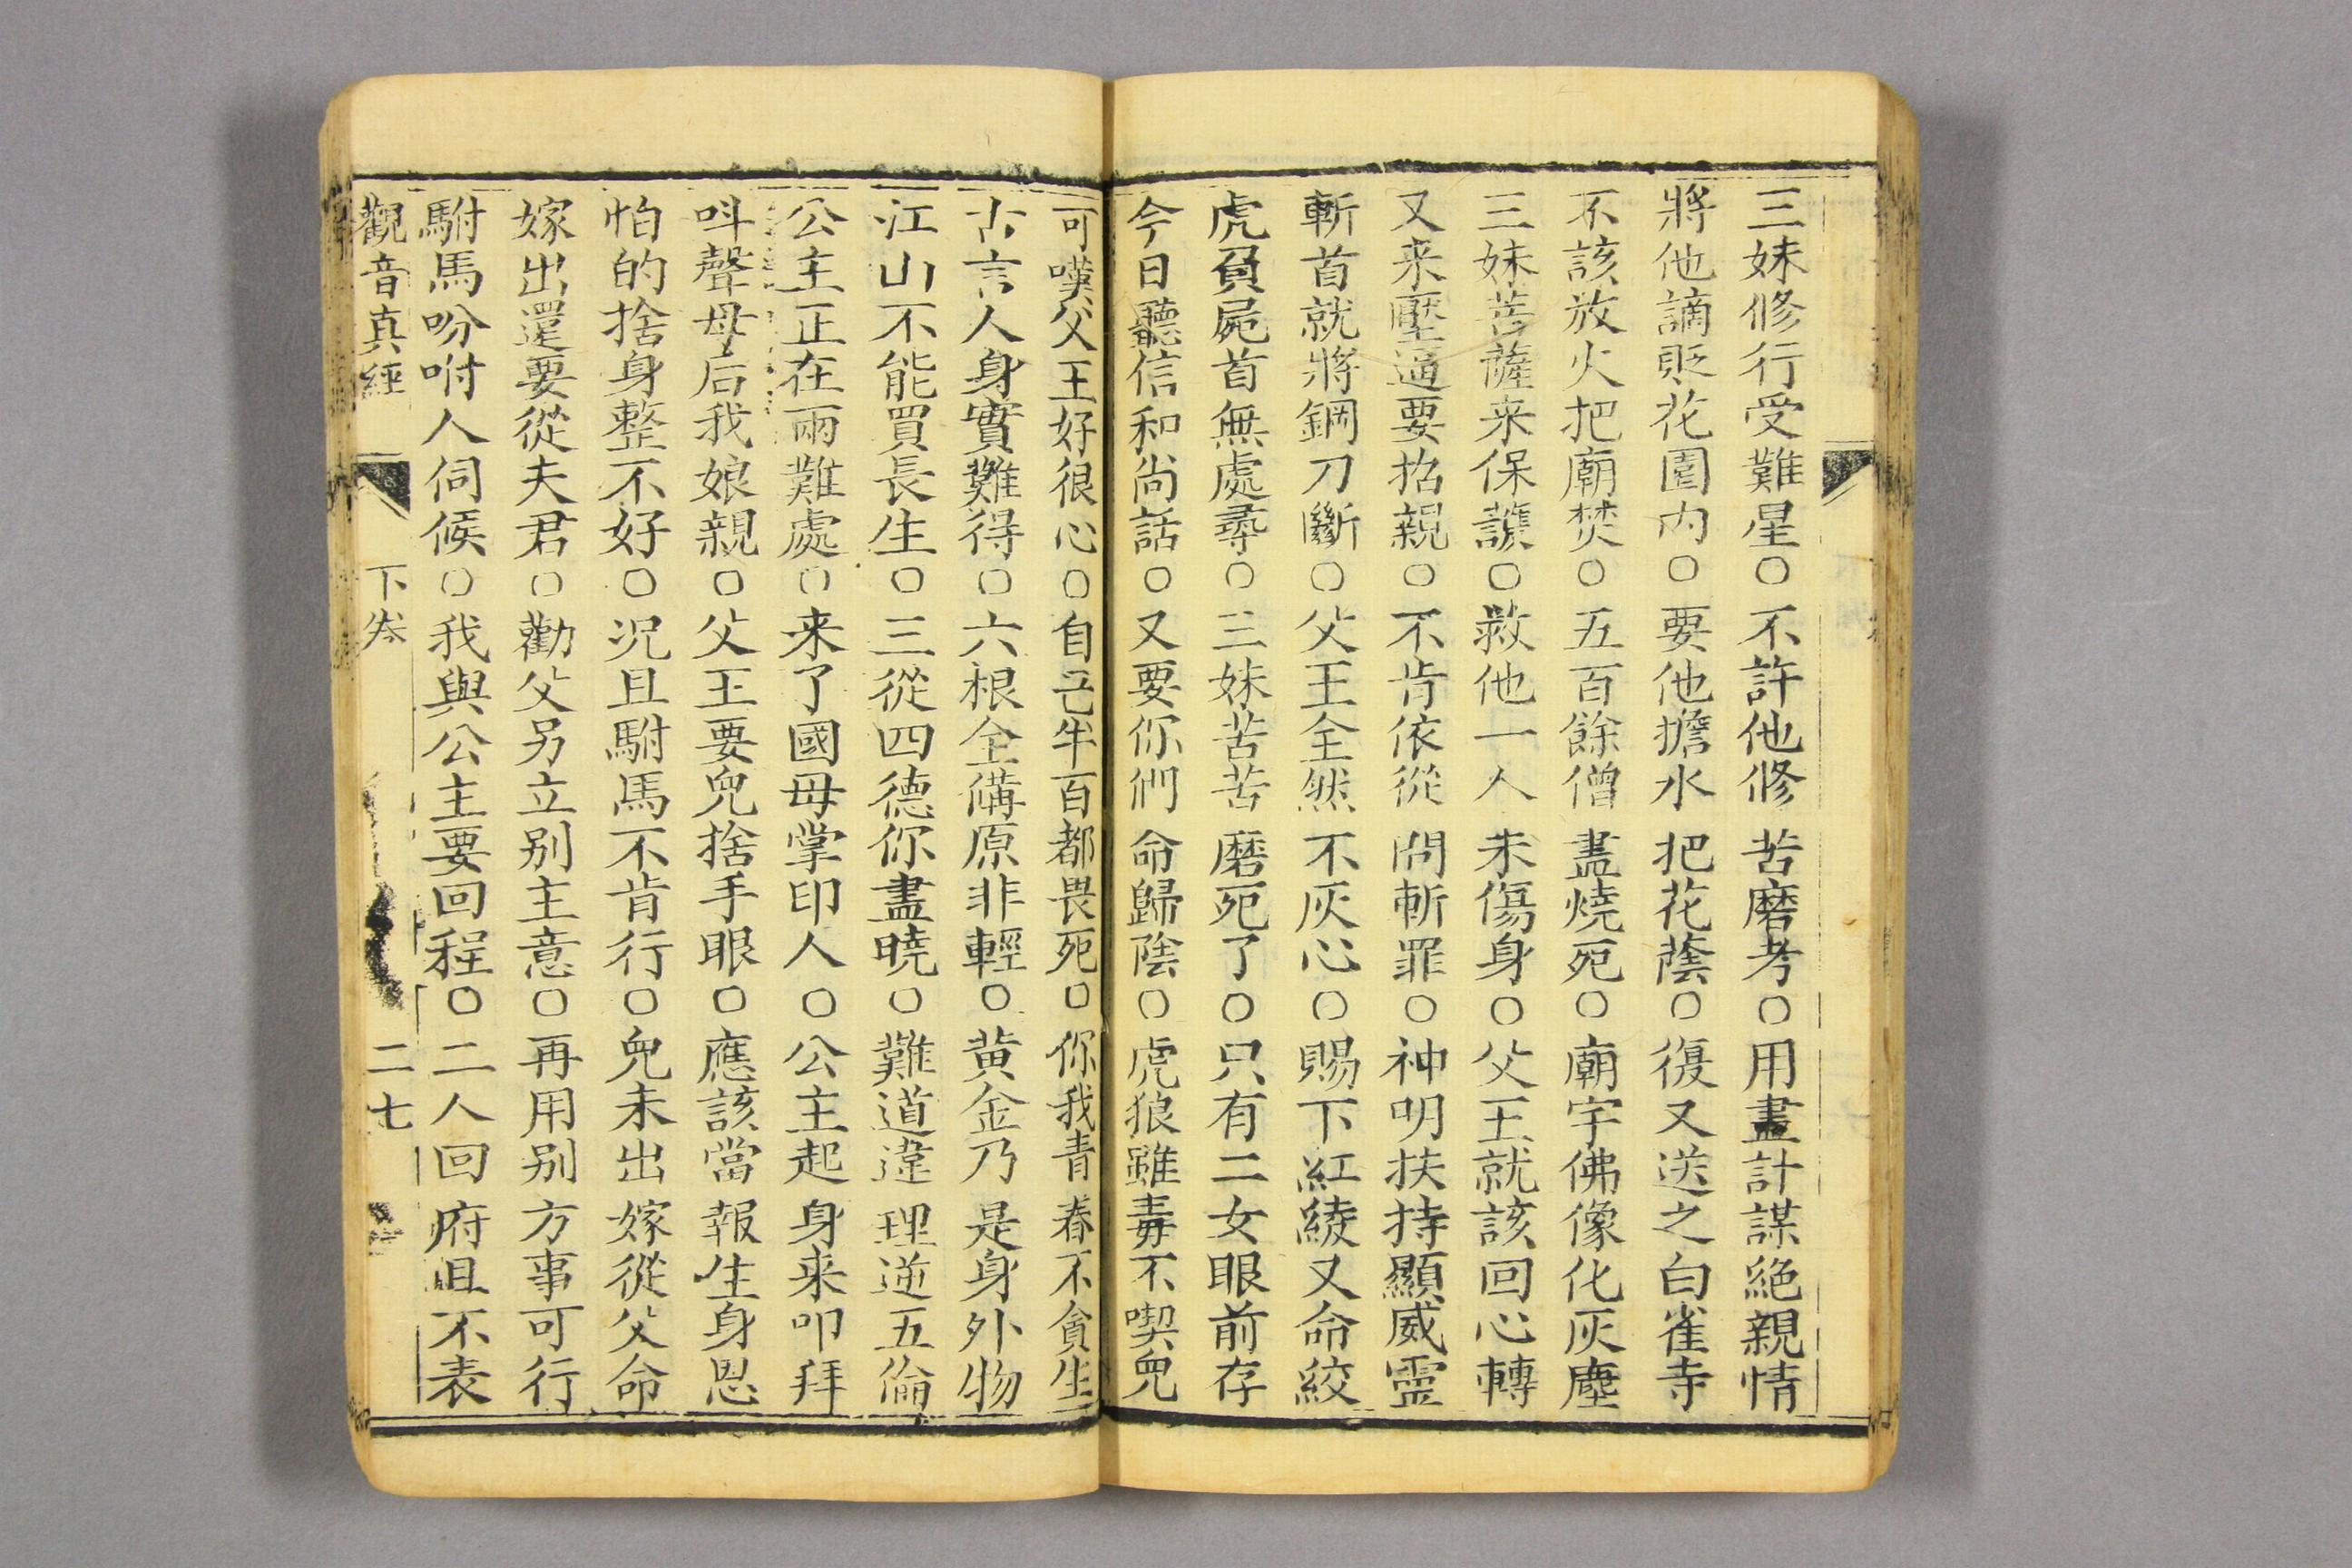 三妹修行受難星○不許他修苦磨考○用盡計謀絕親情
將他謫貶花園內○要他擔水把花蔭○復又送之白雀寺
不該放火把廟焚○五百餘僧盡燒死○廟宇佛像化灰塵
三妹菩薩来保護○救他一人未傷身○父王就該回心轉
又来壓逼要招親○不肯依從問斬罪○神明扶持顯威靈
斬首就將鋼刀斷○父王全然不灰心○賜下紅綾又命絞
虎負屍首無處尋○三妹苦苦磨死了○只有二女眼前存
今日聽信和尚話○又要你們命歸陰○虎狼雖毒不喫兒
可嘆父王好很心○自己年百都畏死○你我青春不貪生
古言人身實難得○六根全備原非輕○黃金乃是身外物
江山不能買長生○三從四德你盡曉○難道違理逆五倫
公主正在兩難處○来了國母掌印人○公主起身来叩拜
呌聲母后我娘親○父王要兒捨手眼○應該當報生身恩
怕的捨身整不好○況且駙馬不肯行○兒未出嫁從父命
嫁出還要從夫君○勸父另立别主意○再用别方事可行
駙馬吩咐人伺候○我與公主要回程○二人回府且不表
觀音真經 下卷 二七